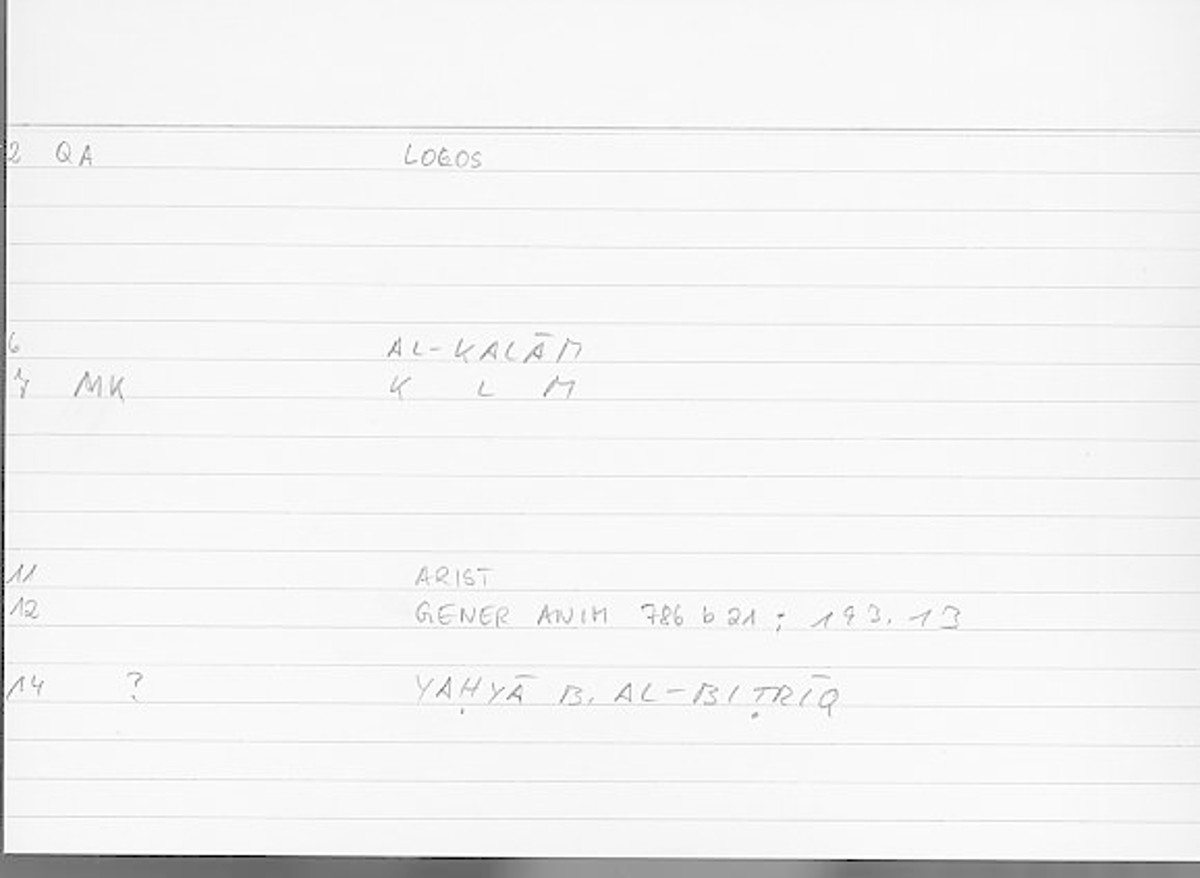 2 QA LOGOS
6 AL-KALĀM
7 MK K L M
11 ARIST
12 GENER ANIM 786 b 21 ; 193.13
14 ? YAḤYĀ B. AL-BIṬRĪQ